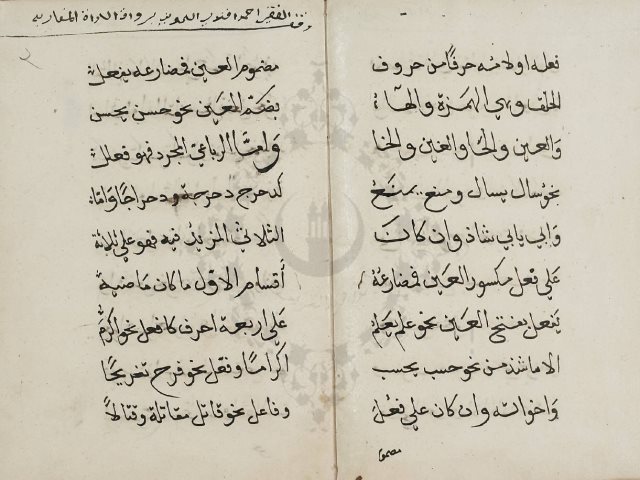 فعله او لامه حرفا من حروف
الحلق وهي الهمزة والهاء
والعين والحا والغين والخا
نحو سال يسال ومنع يمنع
وابي يابي شاذ وان كان
علي فعل مكسور العين فمضارعه
يفعل بفتح العين نحو علم يعلم
الا ما شذ من نحو حسب يحسب
واخواته وان كان علي فعل
مضموم
وقف الفقير احمد
مضموم العين فمضارعه يفعل
بضم العين نحو حسن يحسن
واما الرباعي المجرد فهو فعلل
كدحرج دحرجة ودحراجا واما
الثلاثي المزيد فيه فهو علي ثلاثة
أقسام الاول ما كان ماضيه
علي اربعة احرف كافعل نحو اكرم
اكراما وفعل نحو فرح تفريحا
وفاعل نحو قاتل مقاتلة وقتالا